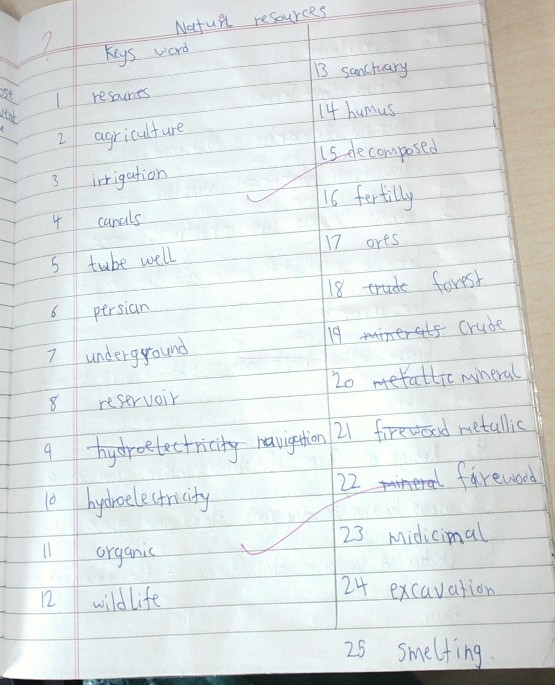 ?
Natural resources
Keys word
1 resources
2 agriculture
3 irrigation
4 canals
5 tube well
6 persian
7 underground
8 reservoir
9 hydroelectricity navigation
10 hydroelectricity
11 organic
12 wildlife
13 sanctuary
14 humus
15 decomposed
16 fertilly
17 ores
18 crude forest
19 minerals Crude
20 metallic mineral
21 firewood metallic
22 mineral farewood
23 midicimal
24 excavation
25 smelting.